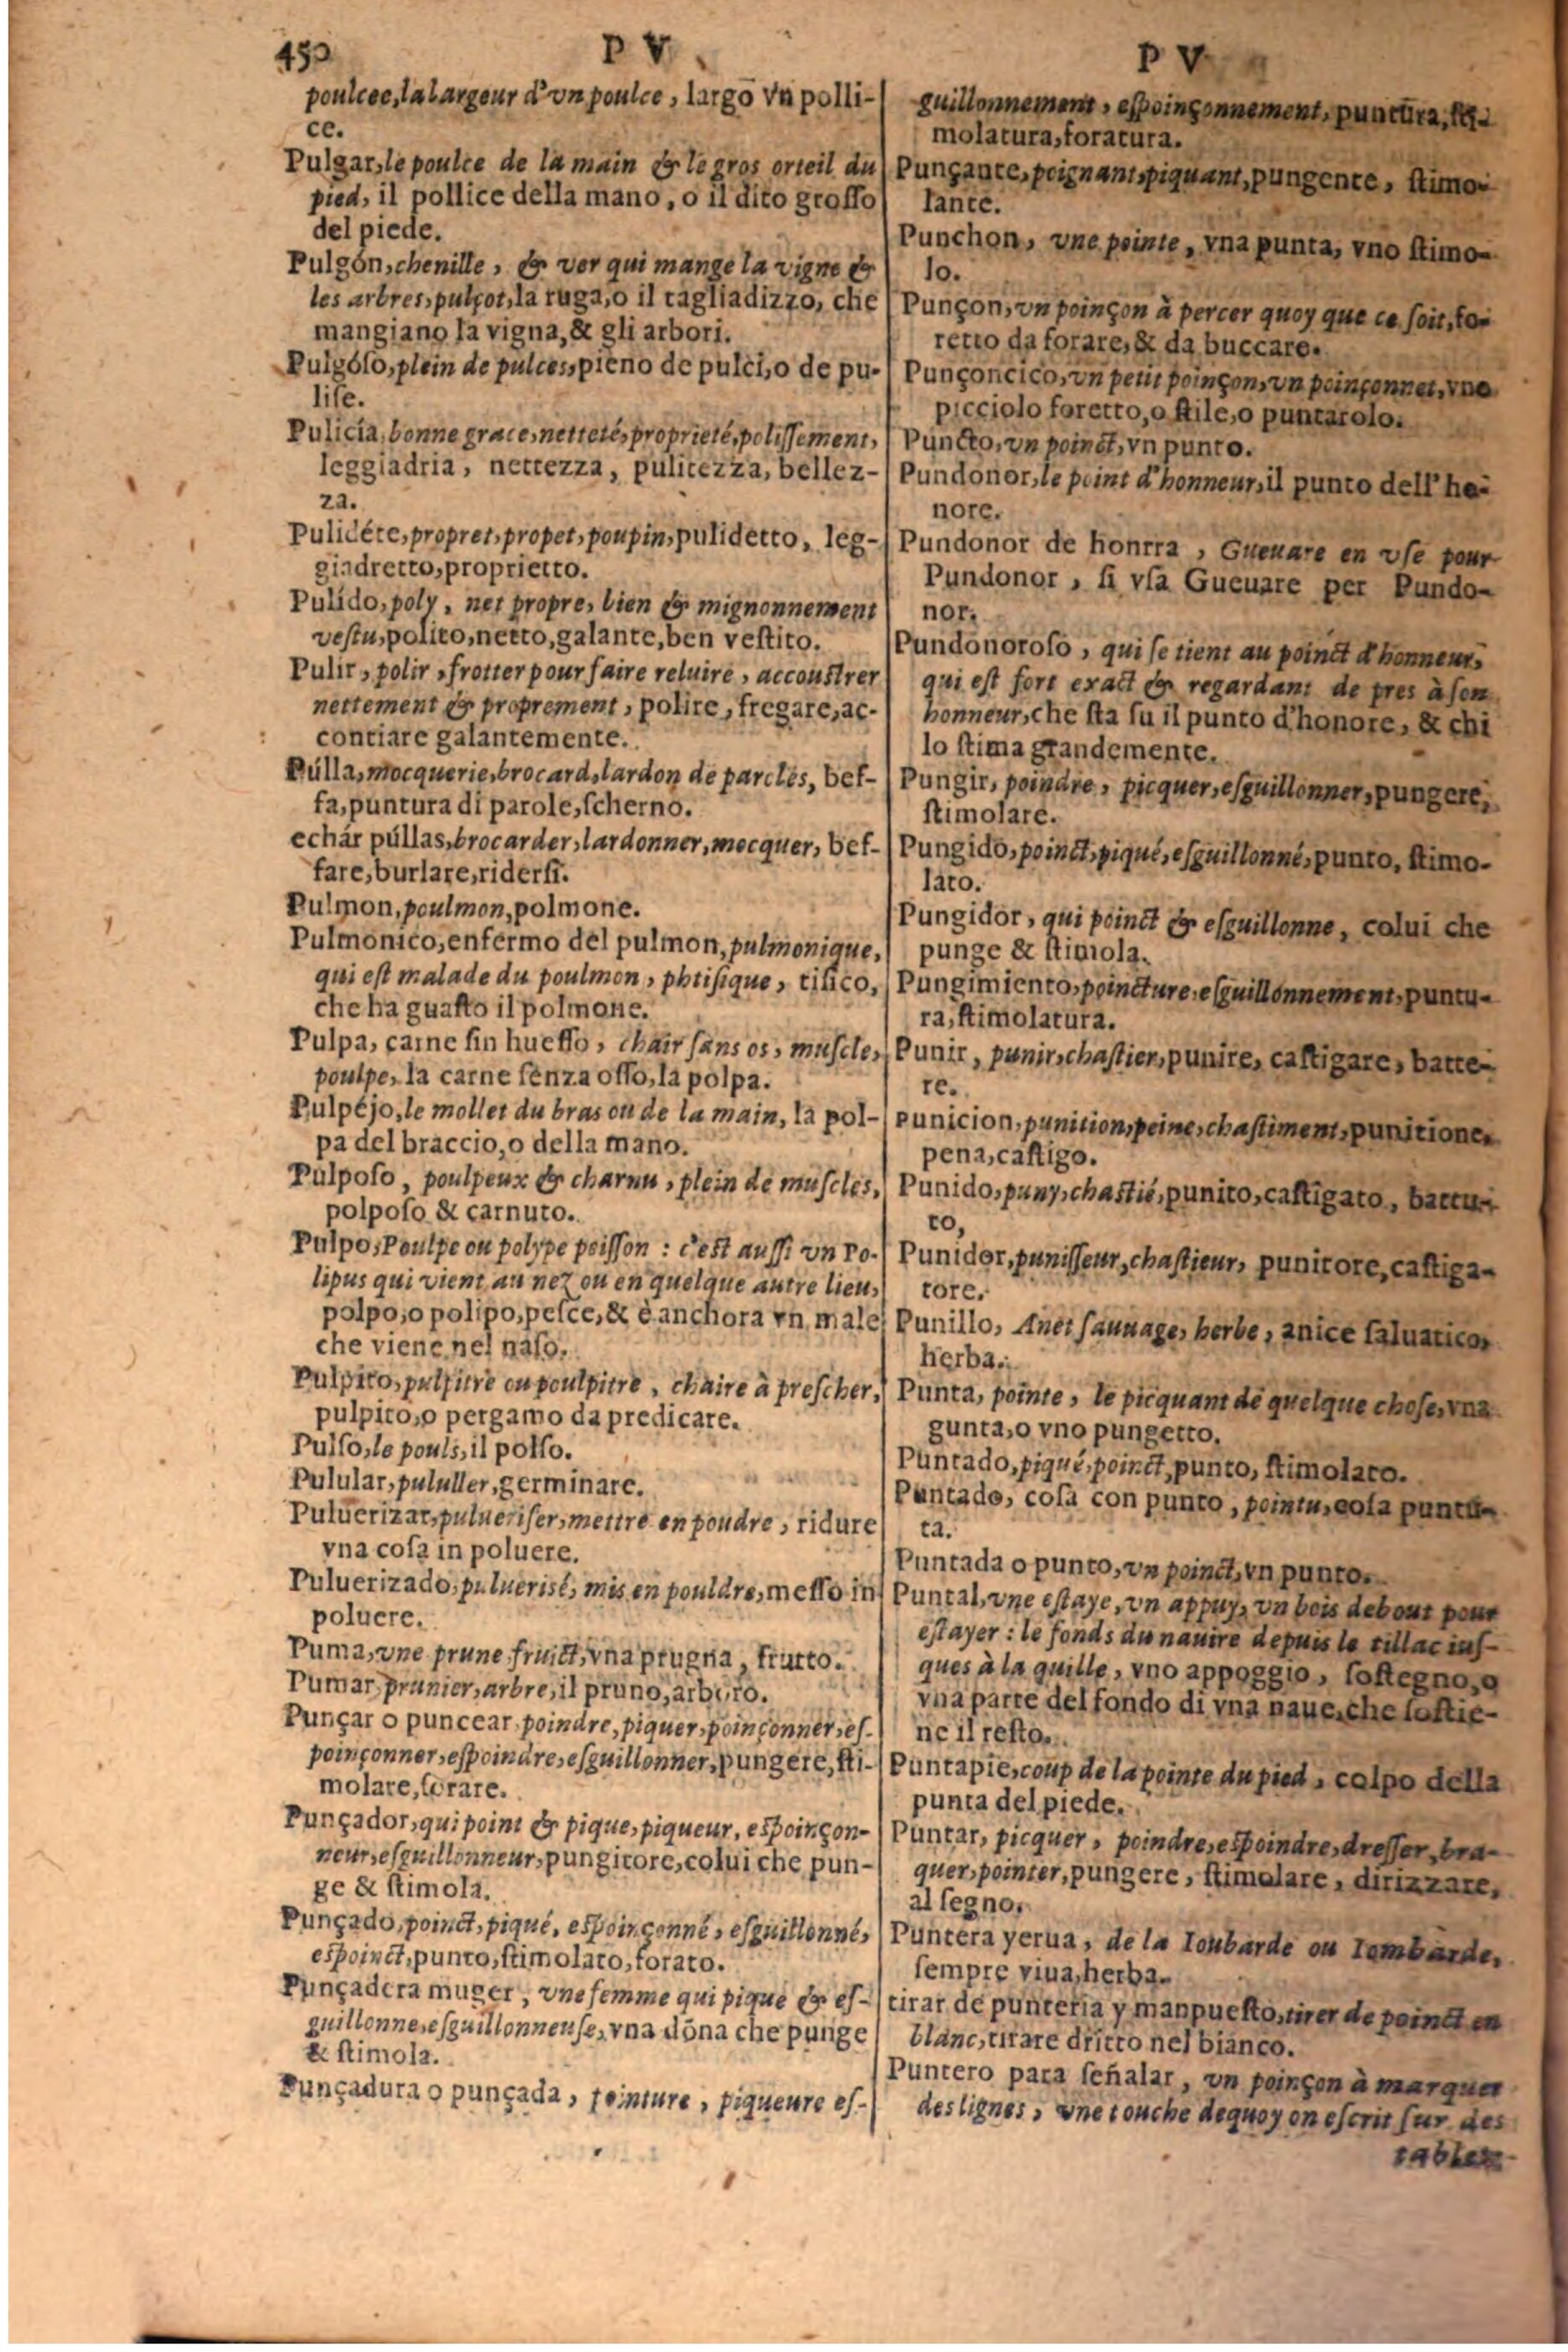 450
P V
P V
poulcee, la largeur d'vn poulce, largō vn polli-
ce.
Pulgar, le poulce de la main & le gros orteil du
pied, il pollice della mano, o il dito groſſo
del piede.
Pulgón, chenille, & ver qui mange la vigne &
les arbres, pulçot, la ruga, o il tagliadizzo, che
mangiano la vigna, & gli arbori.
Pulgóſo, plein de pulces, pieno de pulci, o de pu-
liſe.
Pulicía, bonne grace, netteté, proprieté, poliſſement,
leggiadria, nettezza, pulitezza, bellez-
za.
Pulidéte, propret, propet, poupin, pulidetto, leg-
giadretto, proprietto.
Pulído, poly, net propre, bien & mignonnement
veſtu, polito, netto, galante, ben veſtito.
Pulir, polir, frotter pour faire reluire, accouſtrer
nettement & proprement, polire, fregare, ac-
contiare galantemente.
Púlla, mocquerie, brocard, lardon de parcles, bef-
fa, puntura di parole, ſcherno.
echár púllas, brocarder, lardonner, mocquer, bef-
fare, burlare, riderſi.
Pulmon, poulmon, polmone.
Pulmoníco, enfermo del pulmon, pulmonique,
qui eſt malade du poulmon, phtiſique, tiſico,
che ha guaſto il polmone.
Pulpa, carne ſin hueſſo, chair ſans os, muſcle,
poulpe, la carne ſenza oſſo, la polpa.
Pulpéjo, le mollet du bras ou de la main, la pol-
pa del braccio, o della mano.
Pulpoſo, poulpeux & charnu, plein de muſcles,
polpoſo & carnuto.
Pulpo, Poulpe ou polype poiſſon : c'eſt auſſi vn Po-
lipus qui vient au nez ou en quelque autre lieu,
polpo, o polipo, peſce, & è anchora vn male
che viene nel naſo.
Pulpito, pulpitre ou poulpitre, chaire à preſcher,
pulpito, o pergamo da predicare.
Pulſo, le pouls, il polſo.
Pulular, pululler, germinare.
Puluerizar, pulueriſer, mettre en poudre, ridure
vna coſa in poluere.
Puluerizado, pulueriſé, mis en pouldre, meſſo in
poluere.
Puma, vne prune fruict, vna prugna, frutto.
Pumar, prunier, arbre, il pruno, arboro.
Punçar o puncear, poindre, piquer, poinçonner, eſ-
poinçonner, eſpoindre, eſguillonner, pungere, ſti-
molare, forare.
Punçador, qui point & pique, piqueur, eſpoinçon-
neur, eſguillonneur, pungitore, colui che pun-
ge & ſtimola.
Punçado, poinct, piqué, eſpoinçonné, eſguillonné,
eſpoinct, punto, ſtimolato, forato.
Punçadera muger, vne femme qui pique & eſ-
guillonne, eſguillonneuſe, vna dōna che punge
& ſtimola.
Punçadura o punçada, pointure, piqueure eſ-
guillonnement, eſpoinçonnement, punctūra, ſti-
molatura, foratura.
Punçante, poignant, piquant, pungente, ſtimo-
lante.
Punchon, vne pointe, vna punta, vno ſtimo-
lo.
Punçon, vn poinçon à percer quoy que ce ſoit, fo-
retto da forare, & da buccare.
Punçoncico, vn petit poinçon, vn poinçonnet, vno
picciolo foretto, o ſtile, o puntarolo.
Puncto, vn poinct, vn punto.
Pundonor, le point d'honneur, il punto dell' ho-
nore.
Pundonor de honrra, Gueuare en vſe pour
Pundonor, ſi vſa Gueuare per Pundo-
nor.
Pundonoroſo, qui ſe tient au poinct d'honneur,
qui eſt fort exact & regardant de pres à ſon
honneur, che ſta ſu il punto d'honore, & chi
lo ſtima grandemente.
Pungir, poindre, picquer, eſguillonner, pungere,
ſtimolare.
Pungido, poinct, piqué, eſguillonné, punto, ſtimo-
lato.
Pungidor, qui poinct & eſguillonne, colui che
punge & ſtimola.
Pungimiento, poincture, eſguillonnement, puntu-
ra, ſtimolatura.
Punir, punir, chaſtier, punire, caſtigare, batte-
re.
Punicion, punition, peine, chaſtiment, punitione,
pena, caſtigo.
Punido, puny, chaſtié, punito, caſtigato, battu-
to,
Punidor, puniſſeur, chaſtieur, punitore, caſtiga-
tore.
Punillo, Anet ſauuage, herbe, anice ſaluatico,
herba.
Punta, pointe, le picquant de quelque choſe, vna
gunta, o vno pungetto.
Puntado, piqué, poinct, punto, ſtimolato.
Puntado, coſa con punto, pointu, coſa puntu-
ta.
Puntada o punto, vn poinct, vn punto.
Puntal, vne eſtaye, vn appuy, vn bois debout pour
eſtayer : le fonds du nauire depuis le tillac iuſ-
ques à la quille, vno appoggio, ſoſtegno, o
vna parte del fondo di vna naue, che ſoſtie-
ne il reſto.
Puntapie, coup de la pointe du pied, colpo della
punta del piede.
Puntar, picquer, poindre, eſpoindre, dreſſer, bra-
quer, pointer, pungere, ſtimolare, dirizzare,
al ſegno.
Puntera yerua, de la Ioubarde ou Iombarde,
ſempre viua, herba.
tirar de punteria y manpueſto, tirer de poinct en
blanc, tirare dritto nel bianco.
Puntero para ſeñalar, vn poinçon à marquer
des lignes, vne touche dequoy on eſcrit ſur des
tables